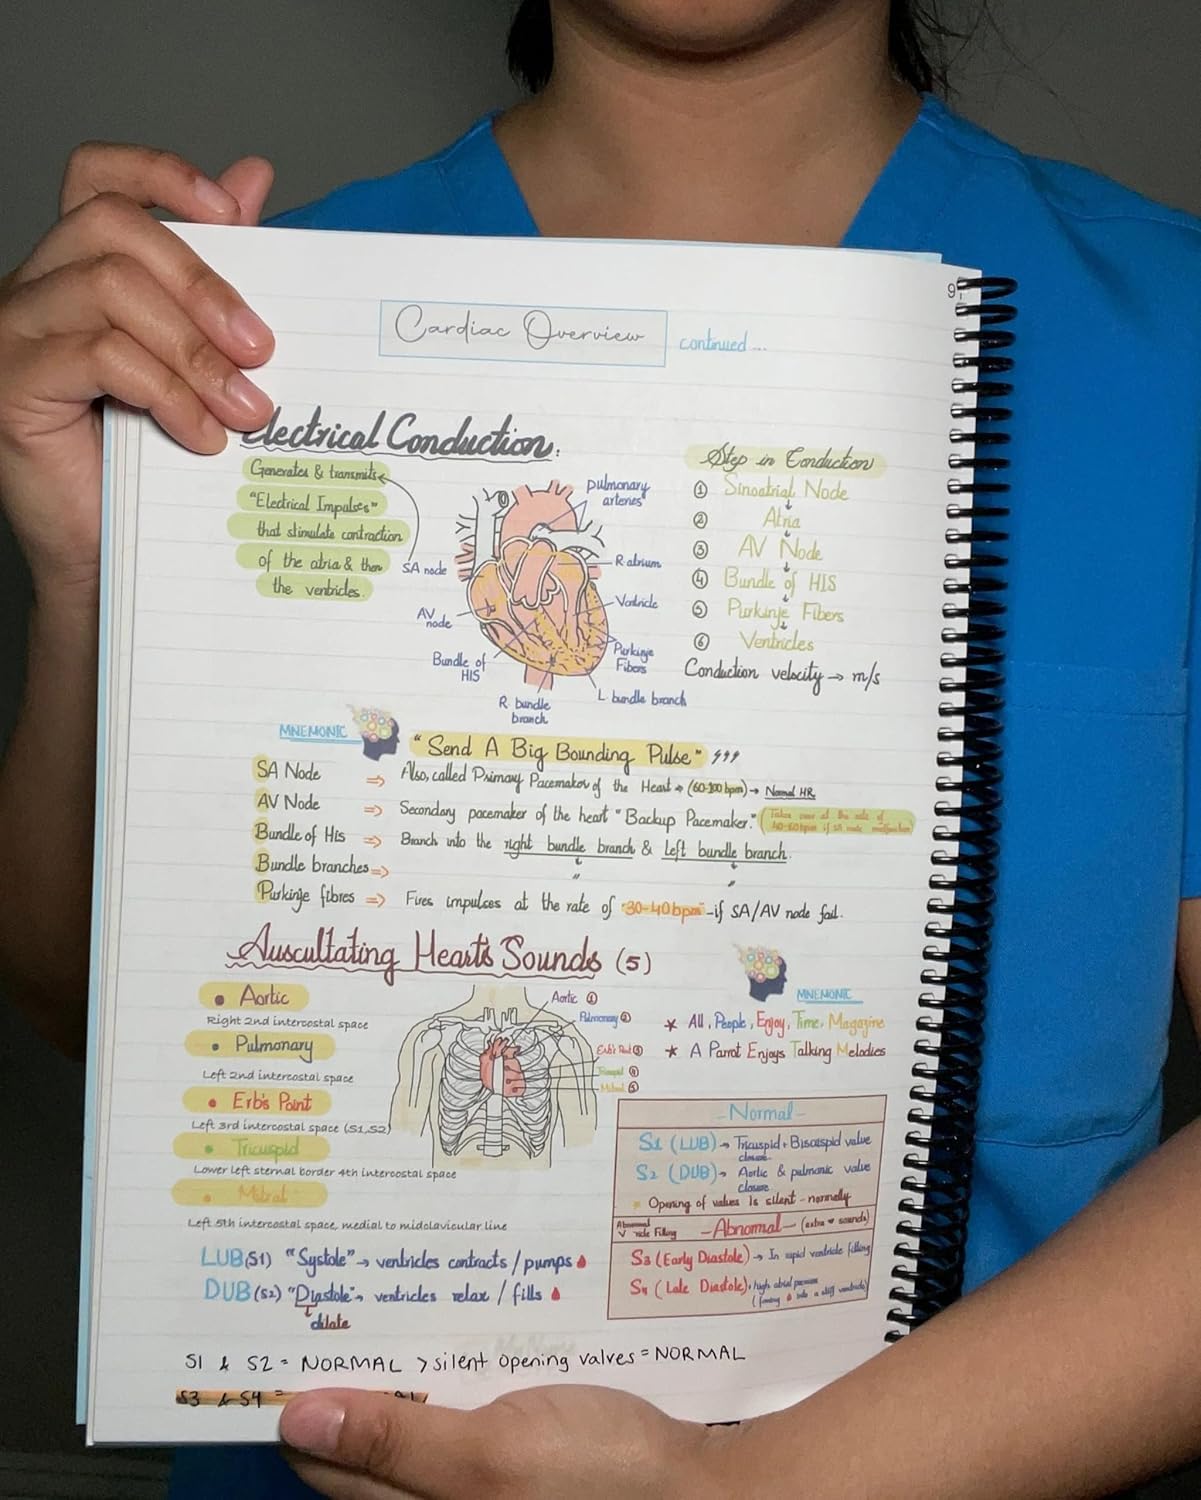 9
Cardiac Overview continued...
Electrical Conduction.
Generates & transmits
"Electrical Impulses"
that stimulate contraction
of the atria & then
the ventricles.
SA node
AV node
Bundle of HIS
R bundle branch
L bundle branch
Purkinje Fibers
Ventricle
R atrium
pulmonary arteries
Step in Conduction
① Sinoatrial Node
② Atria
③ AV Node
④ Bundle of HIS
⑤ Purkinje Fibers
⑥ Ventricles
Conduction velocity → m/s
MNEMONIC "Send A Big Bounding Pulse"
SA Node ⇒ Also, called Primary Pacemaker of the Heart → (60-100 bpm) → Normal HR
AV Node ⇒ Secondary pacemaker of the heart "Backup Pacemaker." (Takes over at the rate of 40-60bpm if SA node malfunction)
Bundle of His ⇒ Branch into the right bundle branch & Left bundle branch.
Bundle branches ⇒ " "
Purkinje fibres ⇒ Fires impulses at the rate of "30-40bpm" - if SA/AV node fail.
Auscultating Heart's Sounds (5)
• Aortic
Right 2nd intercostal space
• Pulmonary
Left 2nd intercostal space
• Erb's Point
Left 3rd intercostal space (S1,S2)
• Tricuspid
Lower left sternal border 4th intercostal space
• Mitral
Left 5th intercostal space, medial to midclavicular line
Aortic ①
Pulmonary ②
Erb's Point ③
Tricuspid ④
Mitral ⑤
MNEMONIC
* All, People, Enjoy, Time, Magazine
* A Parrot Enjoys Talking Melodies
- Normal -
S1 (LUB) → Tricuspid + Biscuspid valve closure
S2 (DUB) → Aortic & pulmonic valve closure
* Opening of valves Is silent - normally
Abnormal Filling - Abnormal - (extra sounds)
S3 (Early Diastole) → In rapid ventricle filling
S4 (Late Diastole) → high atrial pressure
(forcing into a stiff ventricle)
LUB (S1) "Systole" → ventricles contracts / pumps
DUB (S2) "Diastole" → ventricles relax / fills
dilate
S1 & S2 = NORMAL > silent opening valves = NORMAL
S3 & S4 =